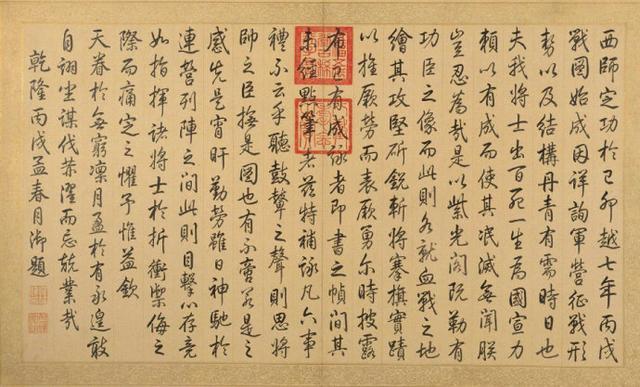 西師定功於己卯越七年丙戌
戰圖始成因詳詢軍營征戰形
勢以及結構丹青有需時日也
夫我將士出百死一生為國宣力
賴以有成而使其泯滅無聞朕
豈忍為哉是以紫光閣既勒有
功臣之像而此則各就血戰之地
繪其攻堅斫銳斬將搴旗實蹟
以推厥勞而表厥勇爾時披露
布即有成詠者即書之幀間其
未經點筆者茲特補詠凡六事
禮不云乎聽鼓鼙之聲則思將
帥之臣撫是圖也有不啻若是之
感先是宵旰勤勞雖日神馳於
連營列陣之間此則目擊以存竟
如指揮諸將士於折衝禦侮之
際而痛定之懼予惟益欽
天眷於無窮凜月盈於有永遑敢
自詡坐謀伐萘濯而忘兢業哉
乾隆丙戌孟春月御題